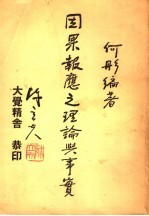 何彤編著
因果報應之理論與事實
大覺精舍 恭印